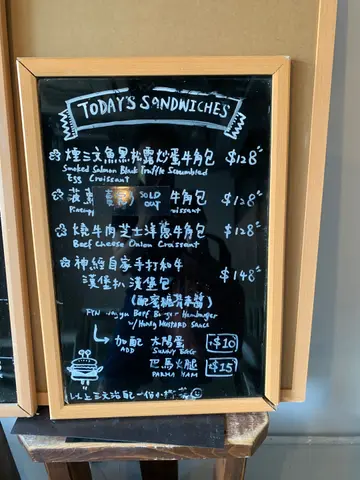 TODAY'S SANDWICHES
煙三文魚黑松露炒蛋牛角包 $128
Smoked Salmon Black Truffle Scrambled
Egg Croissant
菠 SOLD OUT 牛角包 $128
燒牛肉芝士洋蔥牛角包 $128
Beef Cheese Onion Croissant
神經自家手打和牛 $148
漢堡扒漢堡包
(配蜜糖芥末醬)
Beef Burger Hamburger
w/ Honey Mustard Sauce
加配 太陽蛋 +$10
ADD SUNNY EGG
巴馬火腿 +$15
PARMA HAM
以上三文治配一份小